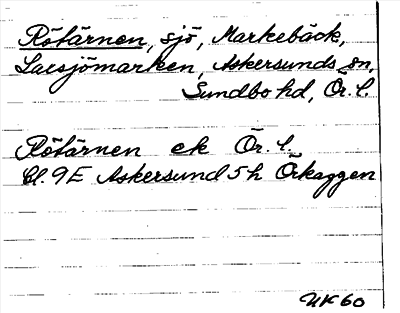 Rötärnen, sjö, Markebäck,
Laxsjömarken, Askersunds sn,
Sundbo hd, Ör. l.
Rötärnen ek Ör. l.
bl. 9E Askersund 5h Örkaggen
UK 60